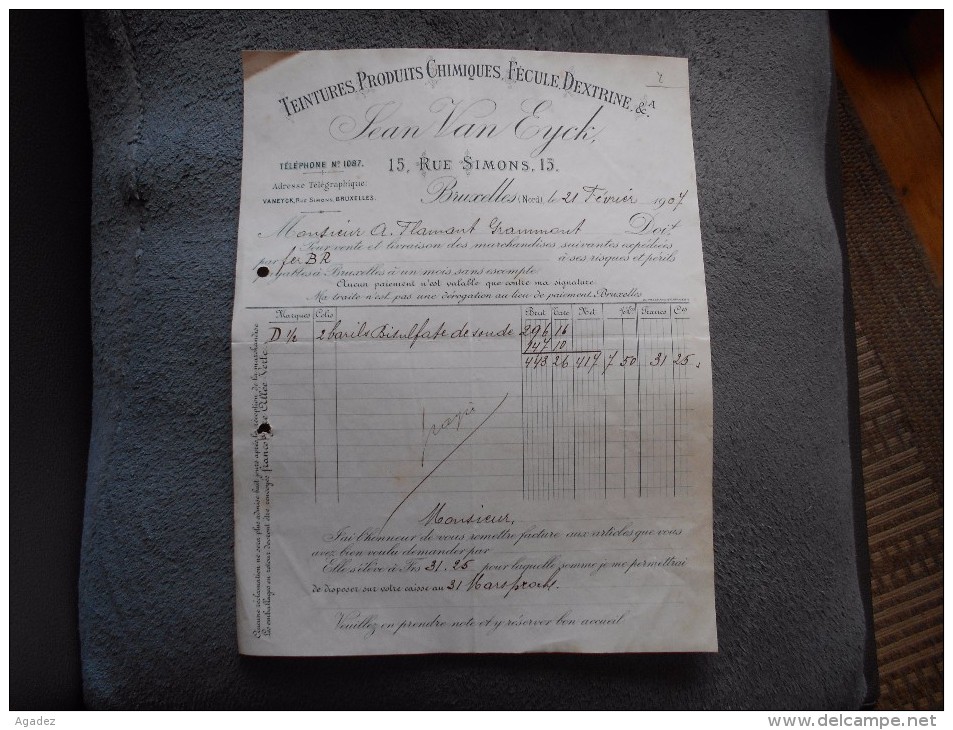 TEINTURES, PRODUITS CHIMIQUES, FÉCULE, DEXTRINE, &.
Jean Van Eyck,
TÉLÉPHONE No 1087.
15, RUE SIMONS, 15.
Adresse Télégraphique:
VANEYCK, RUE SIMONS, BRUXELLES.
Bruxelles (Nord), le 21 Février 1907
Monsieur A. Flamant Grammont Doit
Pour vente et livraison des marchandises suivantes expédiées
par fer BR à ses risques et périls
payables à Bruxelles à un mois sans escompte
Aucun paiement n'est valable que contre ma signature.
Ma traite n'est pas une dérogation au lieu de paiement, Bruxelles
Marques Colis Brut Tare Net Francs Cts
D 1/2 2 barils Bisulfate de soude 296 16
147 10
443 26 417 7 50 31 25
Monsieur,
J'ai l'honneur de vous remettre facture aux articles que vous
avez bien voulu demander par
Elle s'élève à Frs 31.25 pour laquelle somme je me permettrai
de disposer sur votre caisse au 31 Mars proch.
Veuillez en prendre note et y réserver bon accueil
Aucune réclamation ne sera plus admise huit jours après la réception de la marchandise.
Les emballages en retour doivent être envoyés franco gare Allée Verte.
Agadez
www.delcampe.net